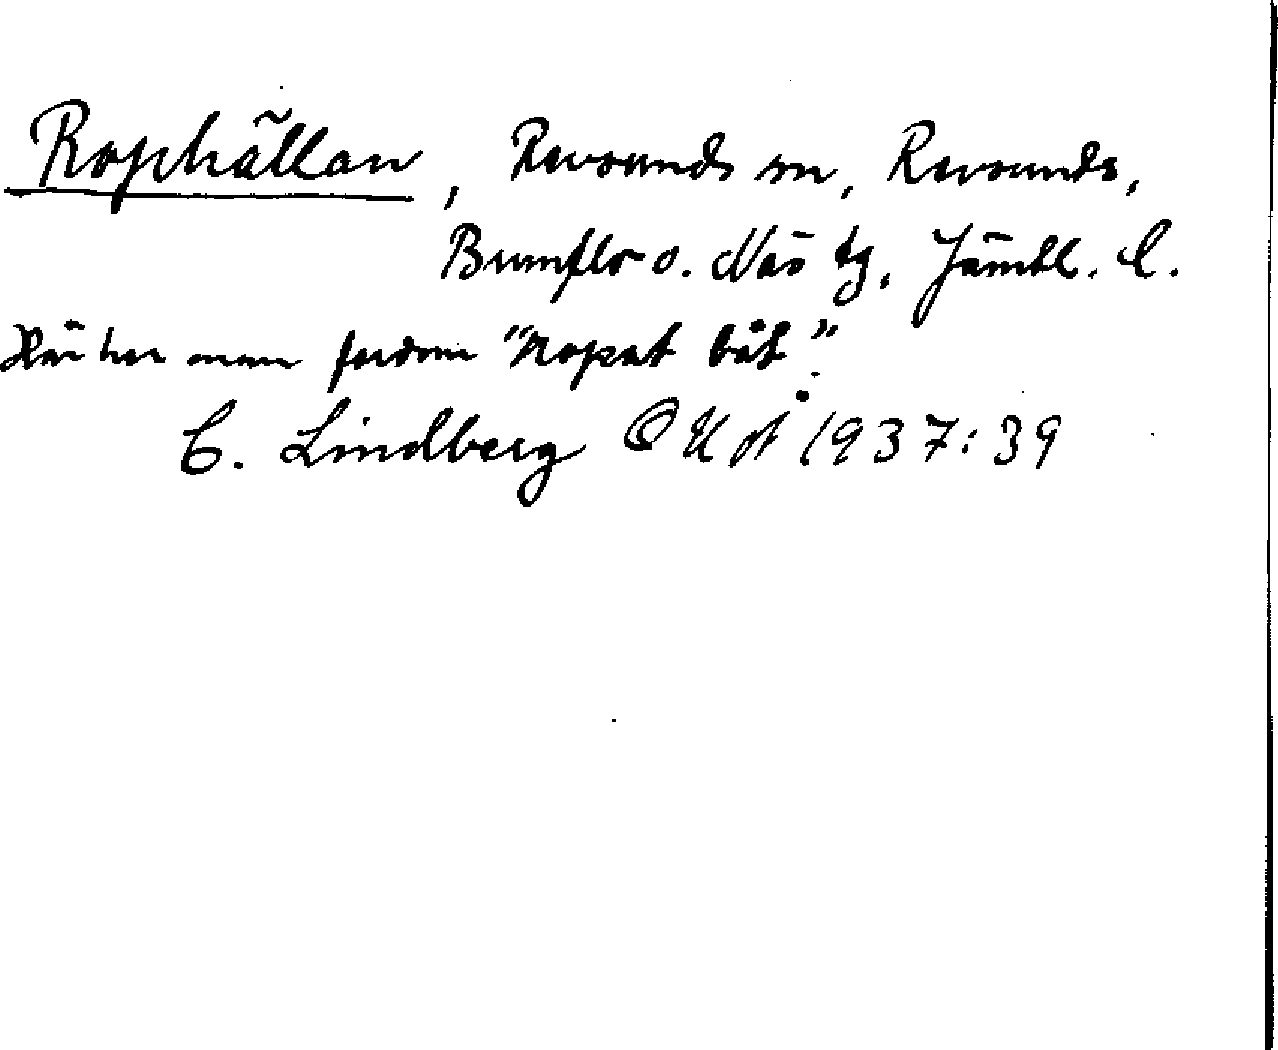 Rophällan, Revsunds sn, Revsunds,
Brunflo o. Näs tg. Jämtl. l.
Här har man fordom "ropat båt".
E. Lindberg OUÅ 1937:39